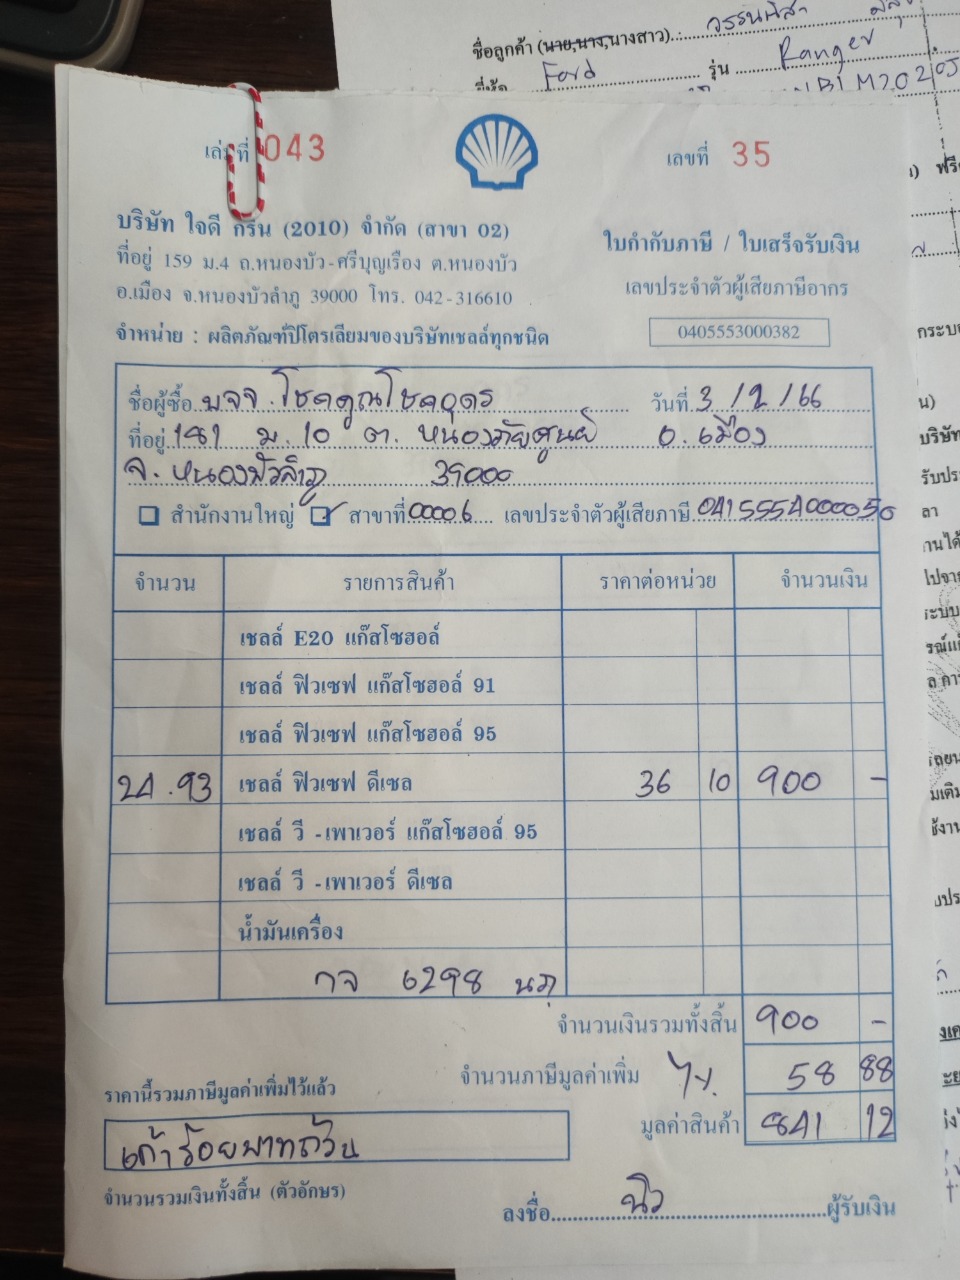 ชื่อลูกค้า (นาย,นาง,นางสาว)
Ford รุ่น Ranger
เล่มที่ 043
เลขที่ 35
บริษัท ใจดี กรีน (2010) จำกัด (สาขา 02)
ที่อยู่ 159 ม.4 ถ.หนองบัว-ศรีบุญเรือง ต.หนองบัว
อ.เมือง จ.หนองบัวลำภู 39000 โทร. 042-316610
จำหน่าย : ผลิตภัณฑ์ปิโตรเลียมของบริษัทเชลล์ทุกชนิด
ใบกำกับภาษี / ใบเสร็จรับเงิน
เลขประจำตัวผู้เสียภาษีอากร
0405553000382
ชื่อผู้ซื้อ บจจ.โชคคูณโชคอุดร วันที่ 3/2/66
ที่อยู่ 181 ม.10 ต. หนองภัยศูนย์ อ.เมือง
จ.หนองบัวลำภู 39000
สำนักงานใหญ่ สาขาที่ 00006 เลขประจำตัวผู้เสียภาษี 0415554000050
จำนวน รายการสินค้า ราคาต่อหน่วย จำนวนเงิน
เชลล์ E20 แก๊สโซฮอล์
เชลล์ ฟิวเซฟ แก๊สโซฮอล์ 91
เชลล์ ฟิวเซฟ แก๊สโซฮอล์ 95
24.93 เชลล์ ฟิวเซฟ ดีเซล 36 10 900 -
เชลล์ วี -เพาเวอร์ แก๊สโซฮอล์ 95
เชลล์ วี -เพาเวอร์ ดีเซล
น้ำมันเครื่อง
กจ 6298 นภ
จำนวนเงินรวมทั้งสิ้น 900 -
จำนวนภาษีมูลค่าเพิ่ม 7%. 58 88
มูลค่าสินค้า 841 12
ราคานี้รวมภาษีมูลค่าเพิ่มไว้แล้ว
เก้าร้อยบาทถ้วน
จำนวนรวมเงินทั้งสิ้น (ตัวอักษร)
ลงชื่อ นิว ผู้รับเงิน